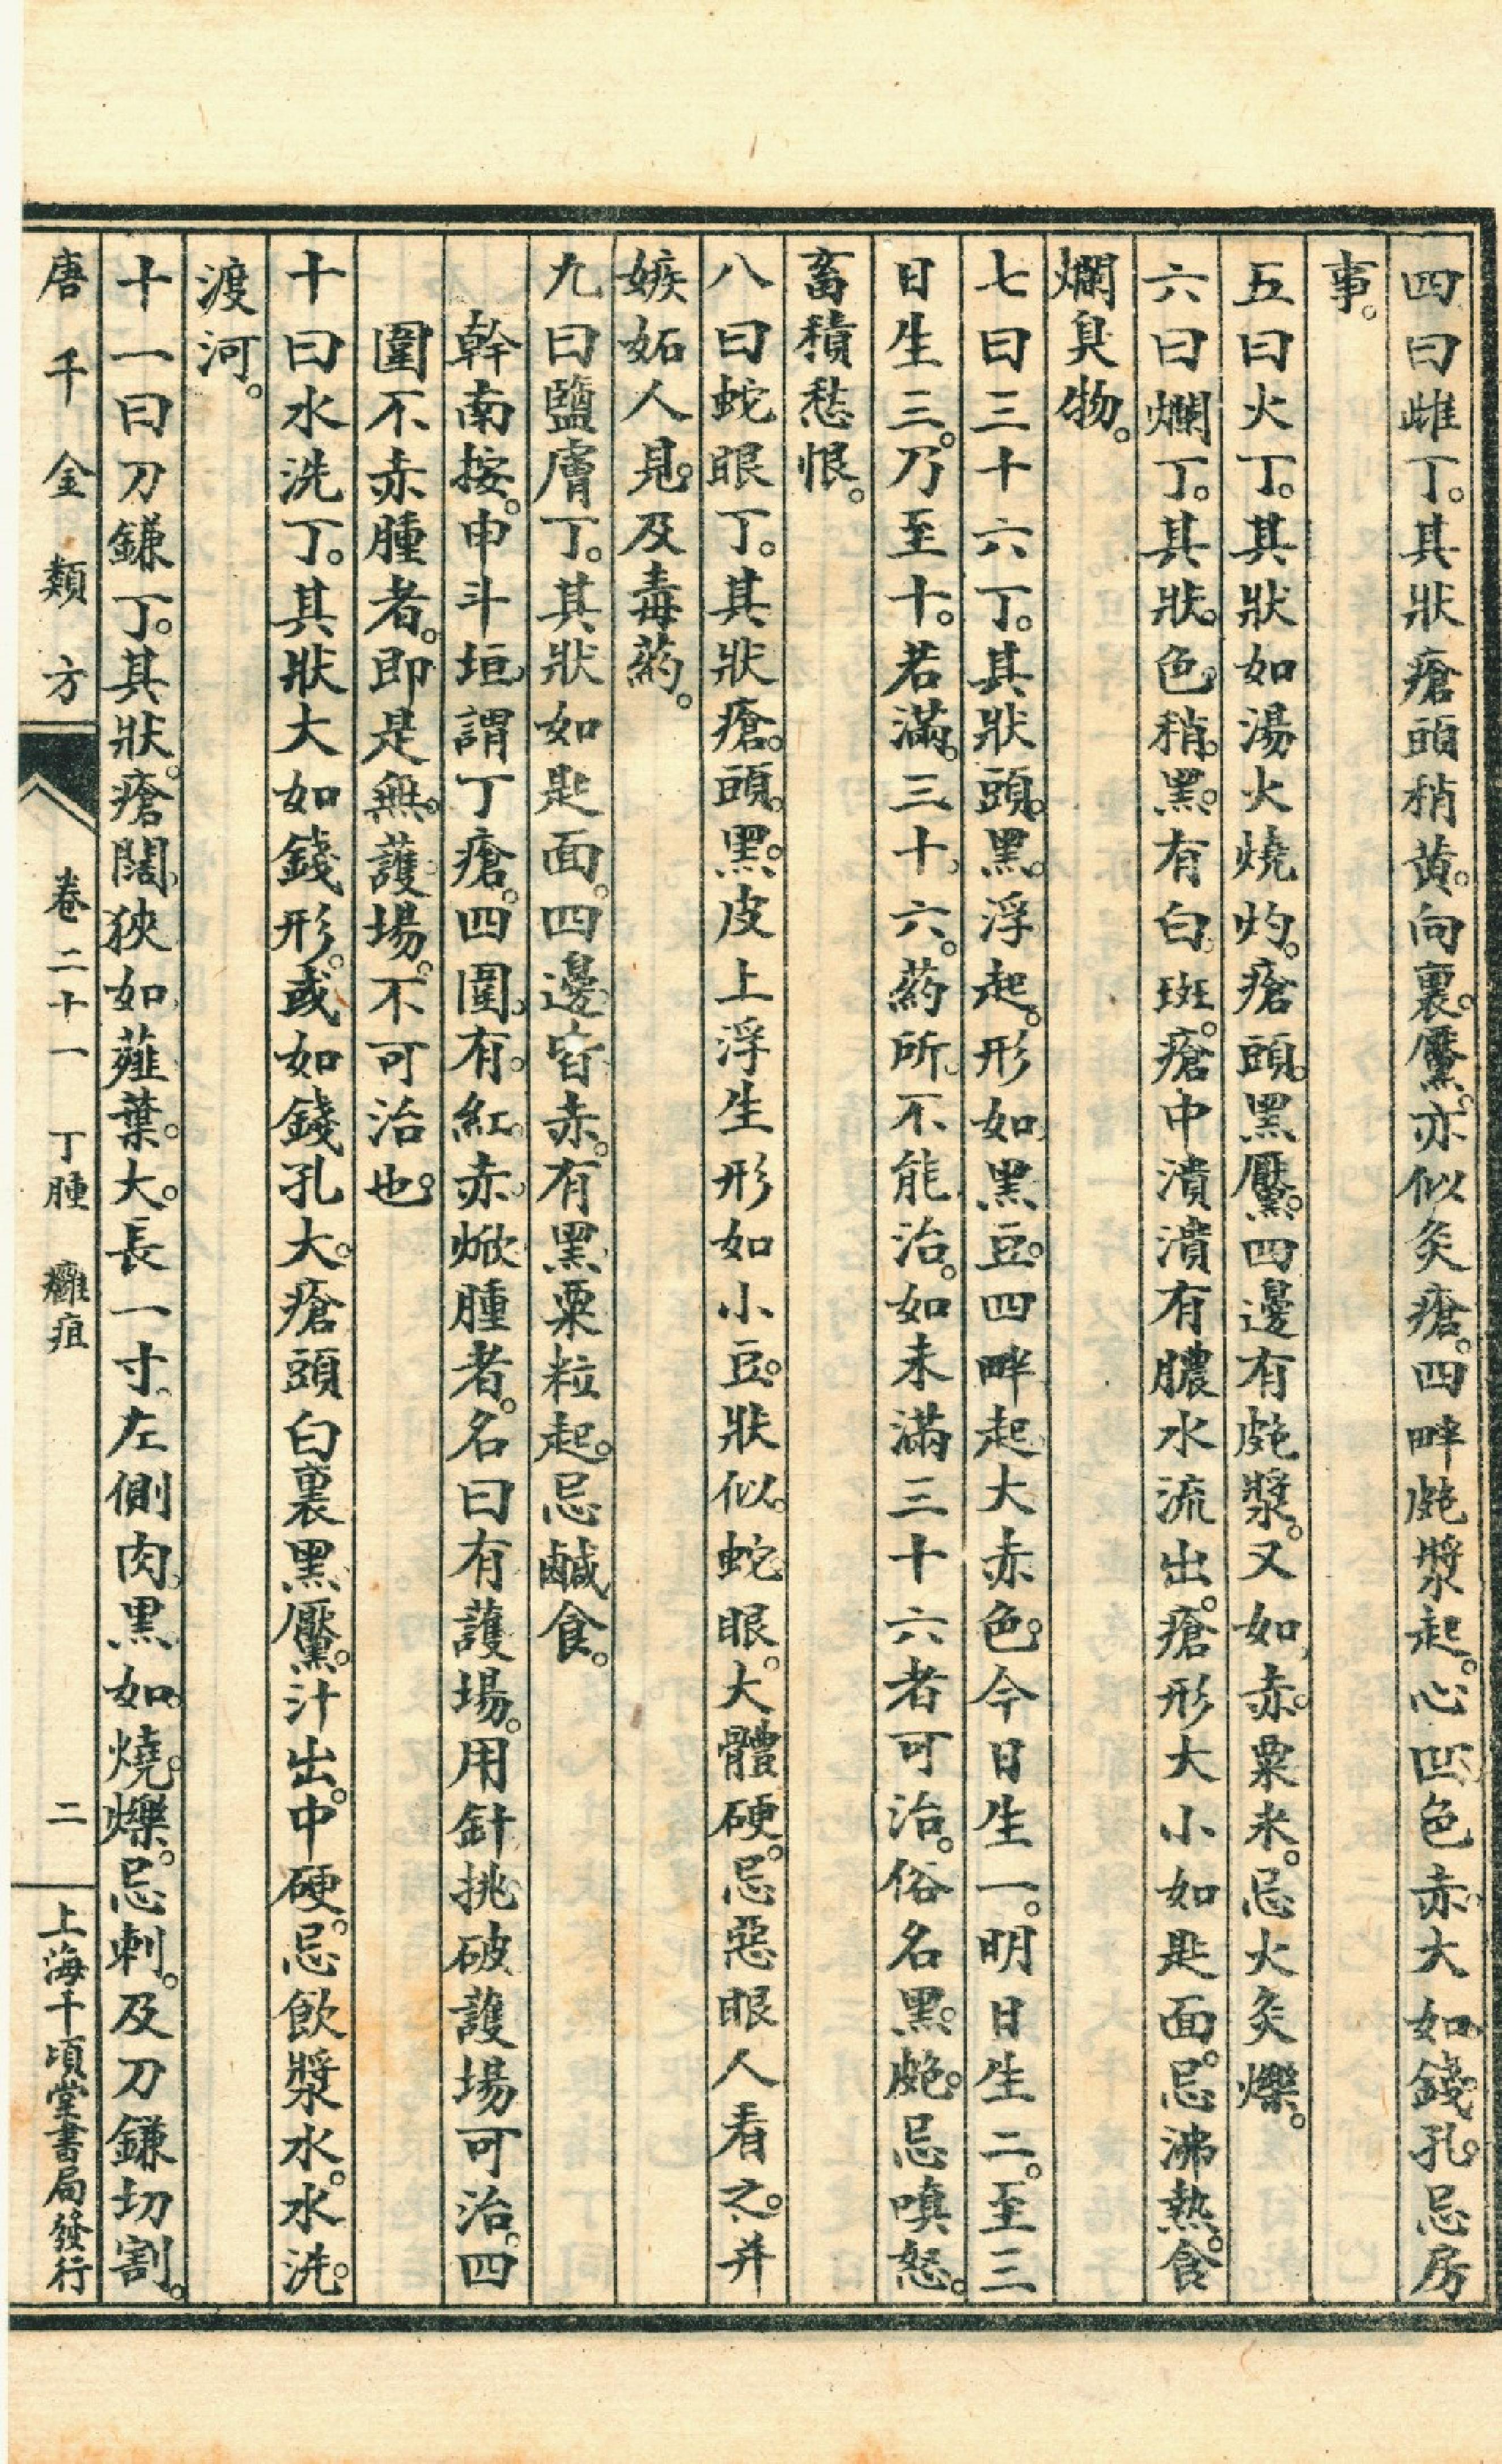 四曰雌丁。其狀瘡頭稍黃。向裏。黶。亦似灸瘡。四畔皰漿起。心凹色赤。大如錢孔。忌房
事。
五曰火丁。其狀如湯火燒灼。瘡頭。黑黶。四邊有皰漿。又如赤粟米。忌火灸爍。
六曰爛丁。其狀。色稍。黑。有白斑。瘡中潰潰有膿水流出。瘡形大小如匙面。忌沸熱。食
爛臭物。
七曰三十六丁。其狀頭。黑。浮起。形如黑豆。四畔起大赤色。今日生一。明日生二。至三
日生三。乃至十。若滿。三十六。藥所不能治。如未滿三十六者可治。俗名黑。皰。忌嗔怒。
畜積愁恨。
八曰蛇眼丁。其狀瘡。頭。黑。皮上浮生形如小豆。狀似蛇眼。大體硬。忌惡眼人看之。并
嫉妬人見。及毒藥。
九曰鹽膚丁。其狀如匙面。四邊皆赤。有黑粟粒起。忌鹹食。
幹南按。申斗垣謂丁瘡。四圍有紅赤焮腫者。名曰有護場。用針挑破護場可治。四
圍不赤腫者。即是無。護場。不可治也。
十曰水洗丁。其狀大如錢形。或如錢孔大。瘡頭白裏黑黶。汁出。中硬。忌飲漿水。水洗。
渡河。
十一曰刀鎌丁。其狀。瘡闊狹如薤葉。大。長一寸。左側肉黑如燒。爍。忌刺。及刀鎌切割。
唐千金類方 卷二十一 丁腫 癰疽 二 上海千頃堂書局發行